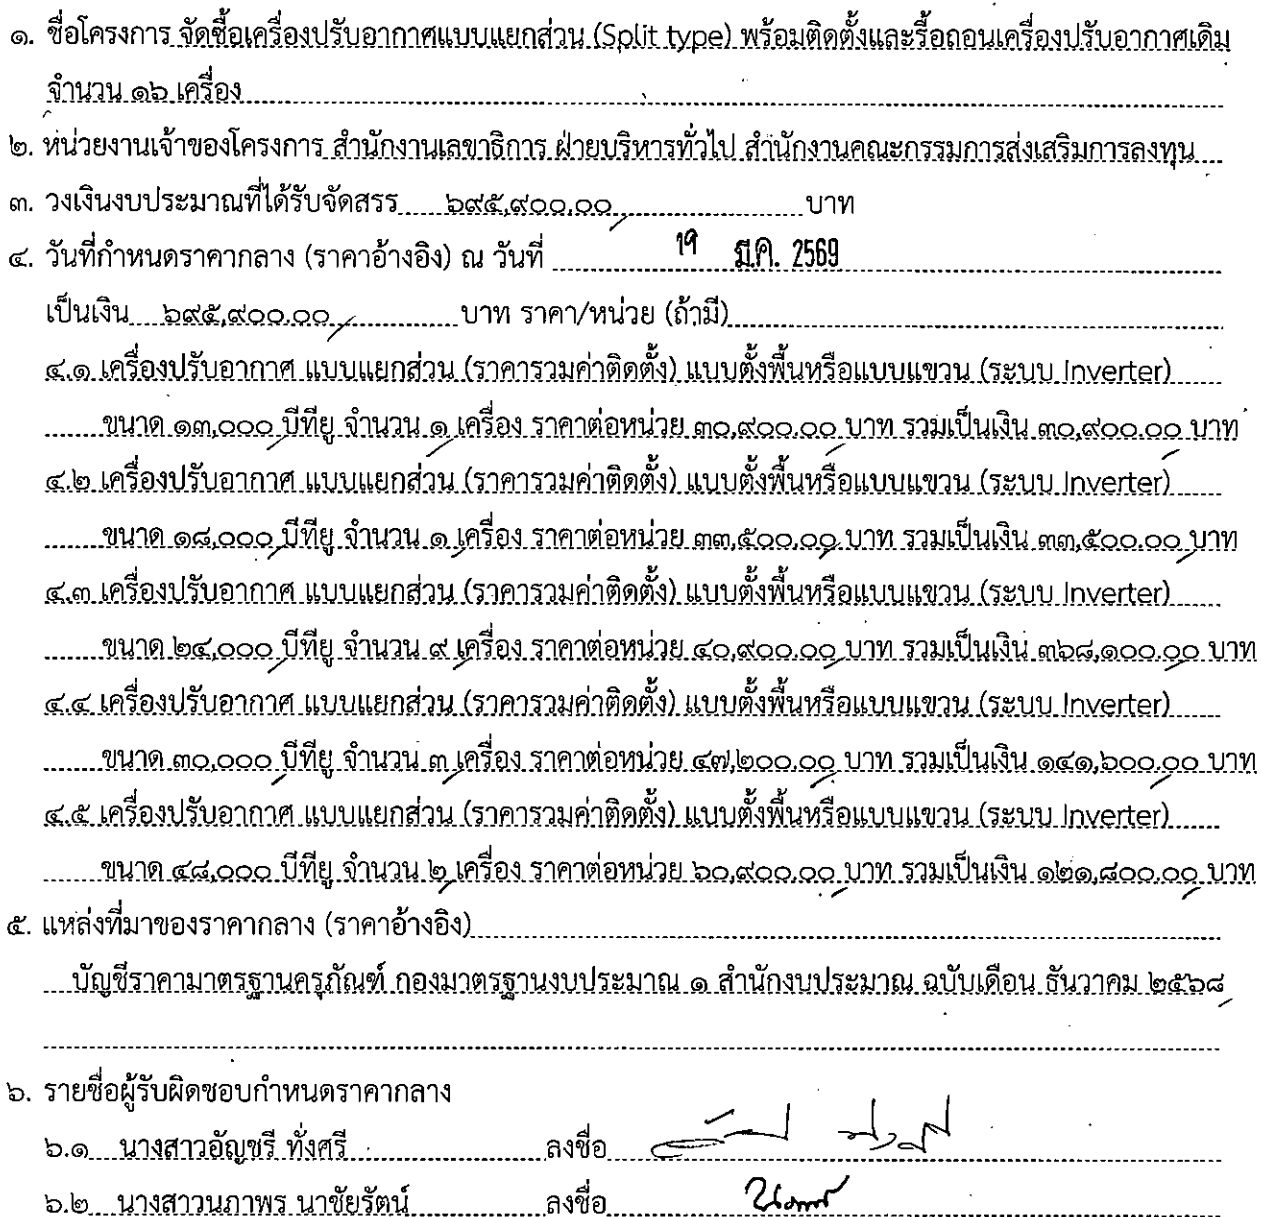 ๑. ชื่อโครงการ จัดซื้อเครื่องปรับอากาศแบบแยกส่วน (Split type) พร้อมติดตั้งและรื้อถอนเครื่องปรับอากาศเดิม
จำนวน ๑๖ เครื่อง
๒. หน่วยงานเจ้าของโครงการ สำนักงานเลขาธิการ ฝ่ายบริหารทั่วไป สำนักงานคณะกรรมการส่งเสริมการลงทุน
๓. วงเงินงบประมาณที่ได้รับจัดสรร ๖๙๕,๙๐๐.๐๐ บาท
๔. วันที่กำหนดราคากลาง (ราคาอ้างอิง) ณ วันที่ 19 มี.ค. 2569
เป็นเงิน ๖๙๕,๙๐๐.๐๐ บาท ราคา/หน่วย (ถ้ามี)
๔.๑ เครื่องปรับอากาศ แบบแยกส่วน (ราคารวมค่าติดตั้ง) แบบตั้งพื้นหรือแบบแขวน (ระบบ Inverter)
ขนาด ๑๓,๐๐๐ บีทียู จำนวน ๑ เครื่อง ราคาต่อหน่วย ๓๐,๙๐๐.๐๐ บาท รวมเป็นเงิน ๓๐,๙๐๐.๐๐ บาท
๔.๒ เครื่องปรับอากาศ แบบแยกส่วน (ราคารวมค่าติดตั้ง) แบบตั้งพื้นหรือแบบแขวน (ระบบ Inverter)
ขนาด ๑๘,๐๐๐ บีทียู จำนวน ๑ เครื่อง ราคาต่อหน่วย ๓๓,๕๐๐.๐๐ บาท รวมเป็นเงิน ๓๓,๕๐๐.๐๐ บาท
๔.๓ เครื่องปรับอากาศ แบบแยกส่วน (ราคารวมค่าติดตั้ง) แบบตั้งพื้นหรือแบบแขวน (ระบบ Inverter)
ขนาด ๒๔,๐๐๐ บีทียู จำนวน ๙ เครื่อง ราคาต่อหน่วย ๔๐,๙๐๐.๐๐ บาท รวมเป็นเงิน ๓๖๘,๑๐๐.๐๐ บาท
๔.๔ เครื่องปรับอากาศ แบบแยกส่วน (ราคารวมค่าติดตั้ง) แบบตั้งพื้นหรือแบบแขวน (ระบบ Inverter)
ขนาด ๓๐,๐๐๐ บีทียู จำนวน ๓ เครื่อง ราคาต่อหน่วย ๔๗,๒๐๐.๐๐ บาท รวมเป็นเงิน ๑๔๑,๖๐๐.๐๐ บาท
๔.๕ เครื่องปรับอากาศ แบบแยกส่วน (ราคารวมค่าติดตั้ง) แบบตั้งพื้นหรือแบบแขวน (ระบบ Inverter)
ขนาด ๔๘,๐๐๐ บีทียู จำนวน ๒ เครื่อง ราคาต่อหน่วย ๖๐,๙๐๐.๐๐ บาท รวมเป็นเงิน ๑๒๑,๘๐๐.๐๐ บาท
๕. แหล่งที่มาของราคากลาง (ราคาอ้างอิง)
บัญชีราคามาตรฐานครุภัณฑ์ กองมาตรฐานงบประมาณ ๑ สำนักงบประมาณ ฉบับเดือน ธันวาคม ๒๕๖๘
๖. รายชื่อผู้รับผิดชอบกำหนดราคากลาง
๖.๑ นางสาวอัญชรี ทั่งศรี ลงชื่อ
๖.๒ นางสาวนภาพร นาชัยรัตน์ ลงชื่อ